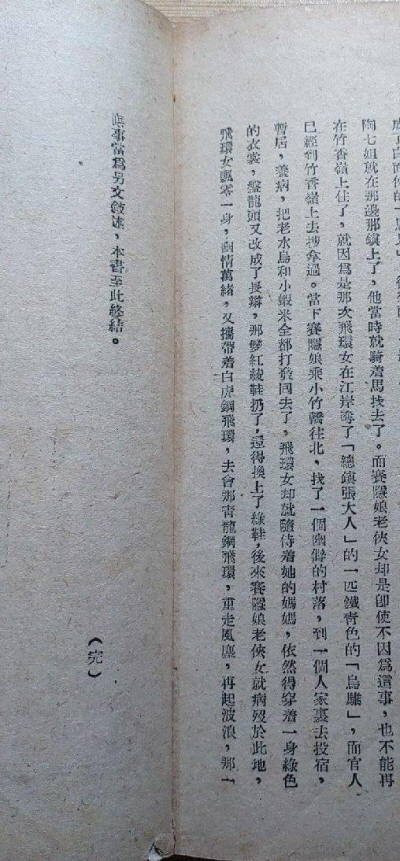 陶七姐就在那邊那鎭上了，他當時就騎着馬找去了。而賽隱娘老俠女却是卽使不因爲這事，也不能再
在竹香嶺上住了，就因爲是那次飛環女在江岸奪了「總鎮張大人」的一匹鐵靑色的「烏騅」，而官人
已經到竹香嶺上去搜拿過。當下賽隱娘乘小竹轎往北，找了一個幽僻的村落，到一個人家裏去投宿，
暫居，養病，把老水鳥和小蝦米全都打發回去了，飛環女却就隨侍着她的媽媽，依然得穿着一身綠色
的衣裳，盤龍頭又改成了長辮，那雙紅綾鞋扔了，還得換上了綠鞋，後來賽隱娘老俠女就病歿於此地，
飛環女飄零一身，幽情萬緒，又攜帶着白虎鋼飛環，去會那靑龍鋼飛環，重走風塵，再起波浪，那一
些事當爲另文敘述，本書至此終結。
（完）